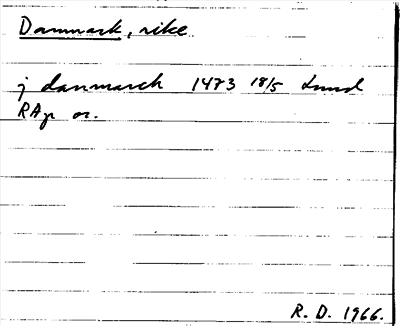 Danmark, rike
j danmarch 1473 18/5 Lund
RAp or.
R. D. 1966.